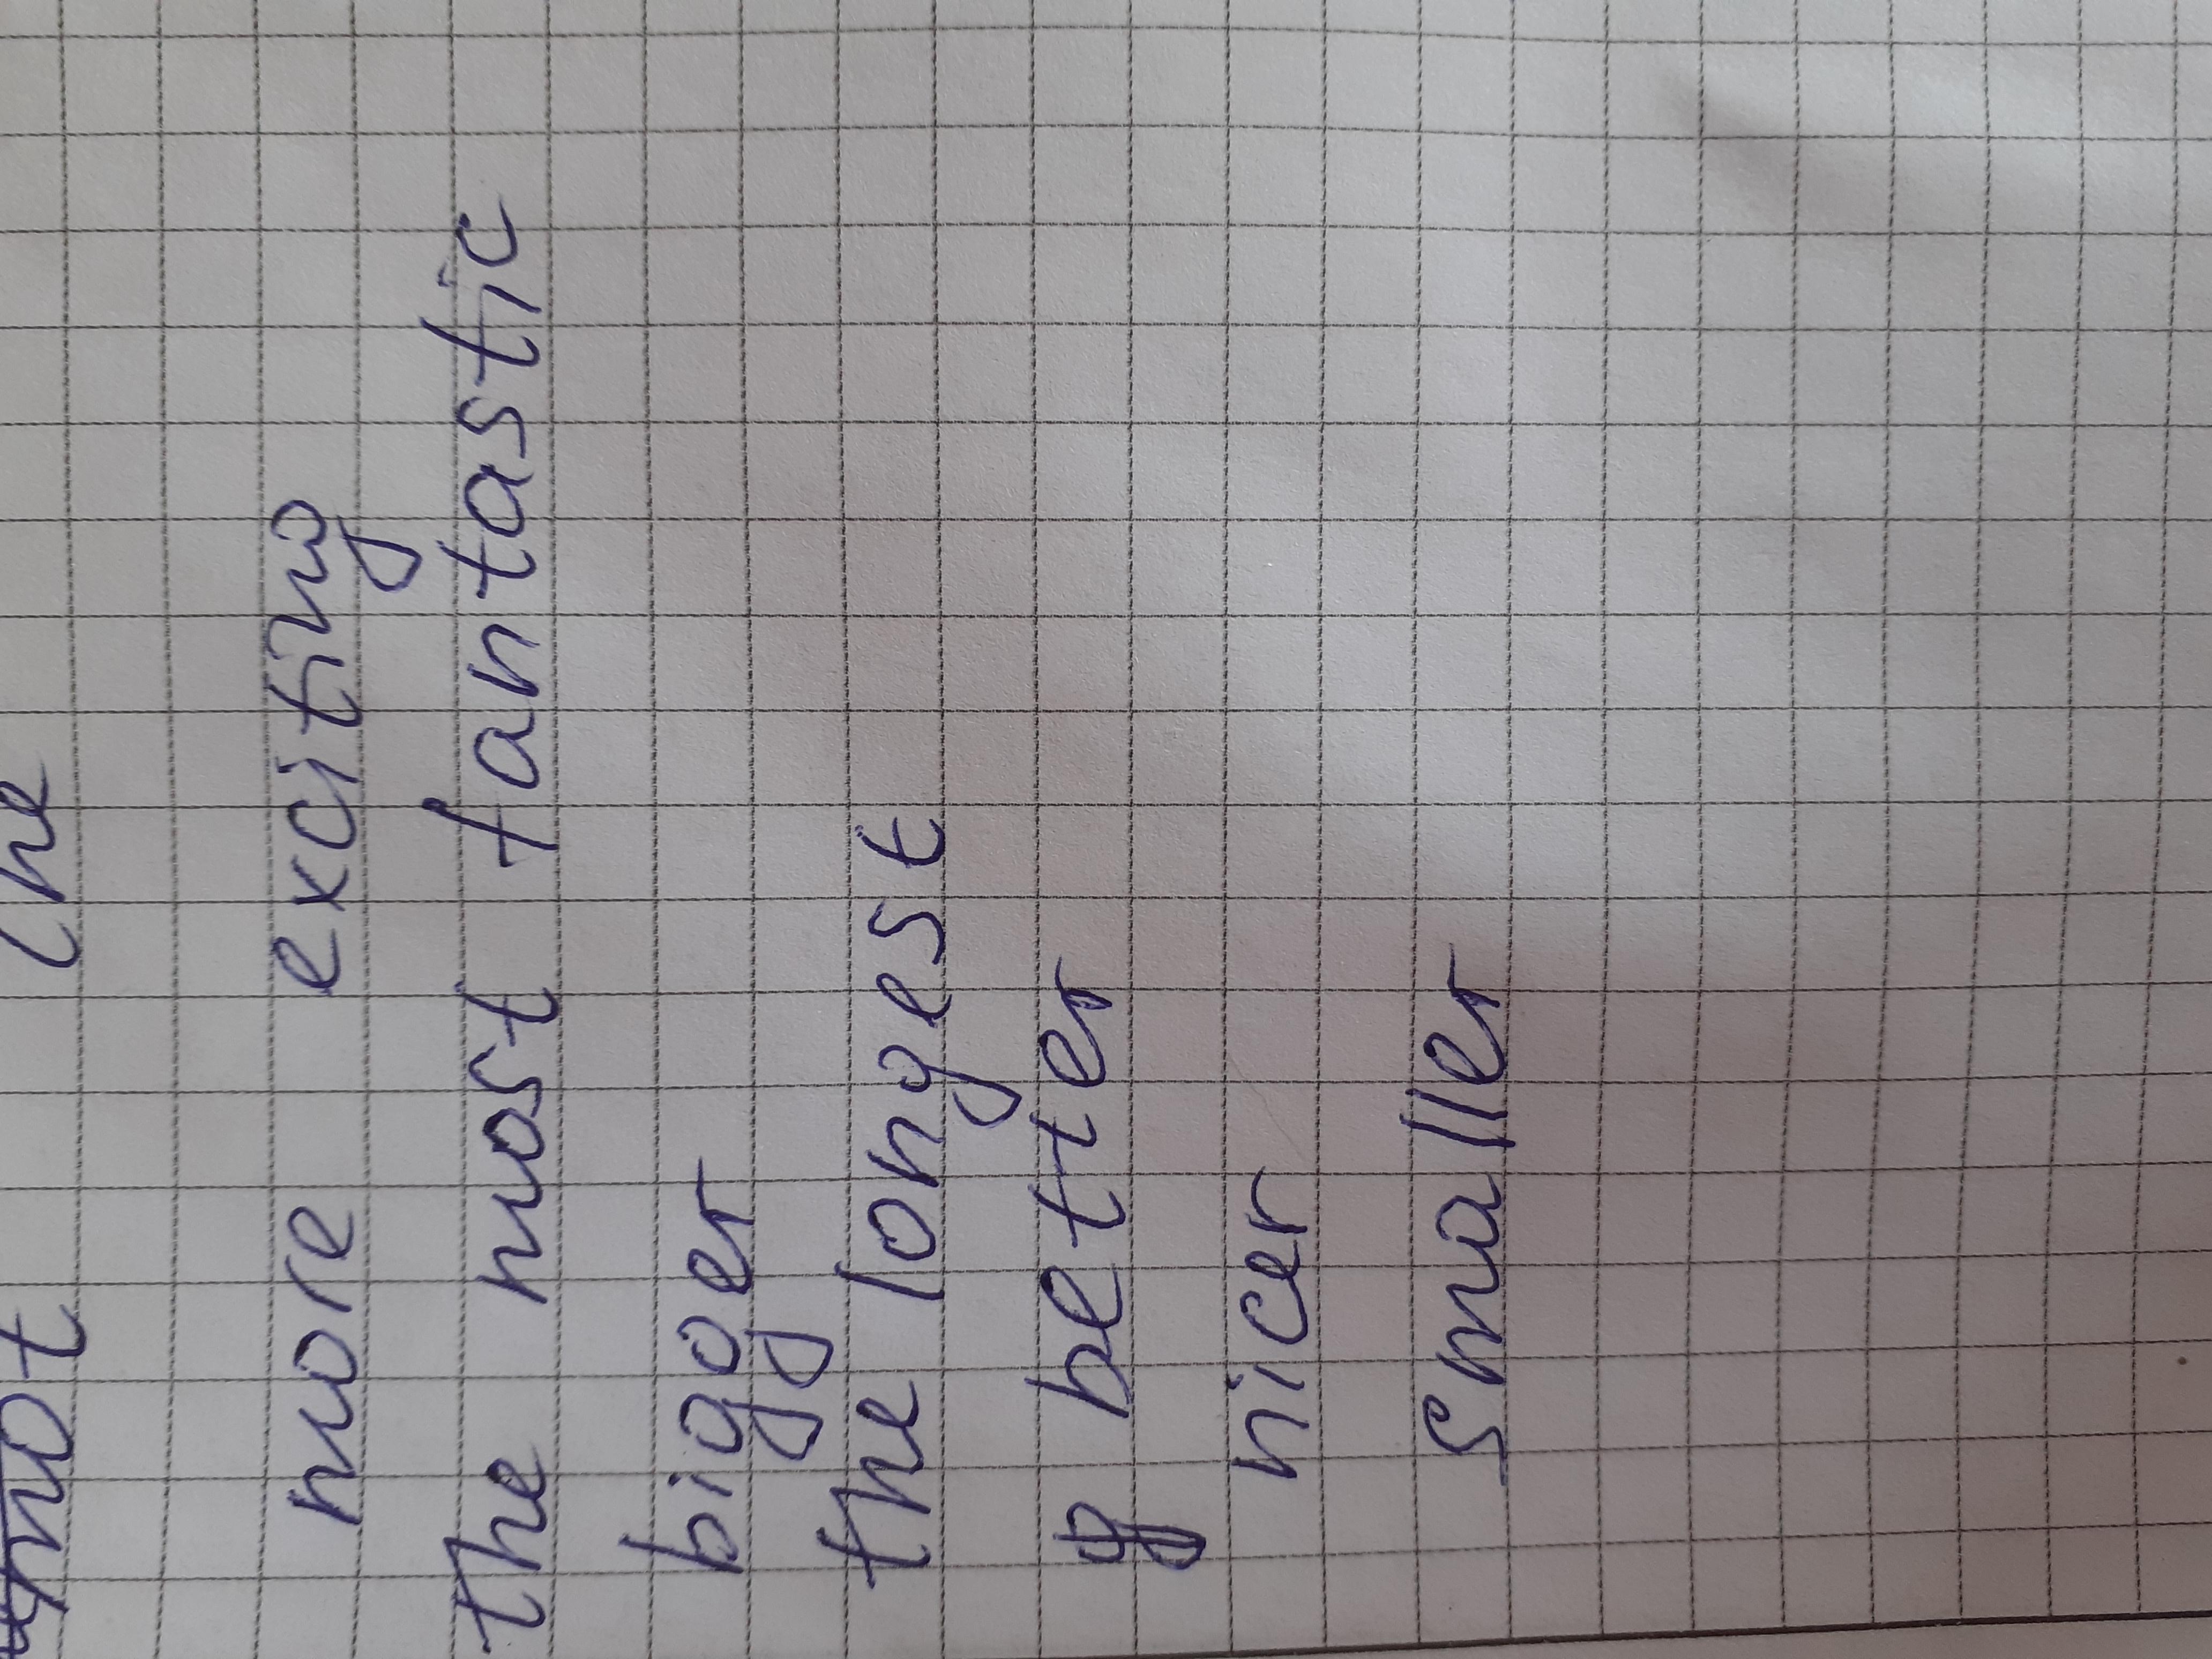 not the
more exciting
the most fantastic
bigger
the longest
better
nicer
smaller